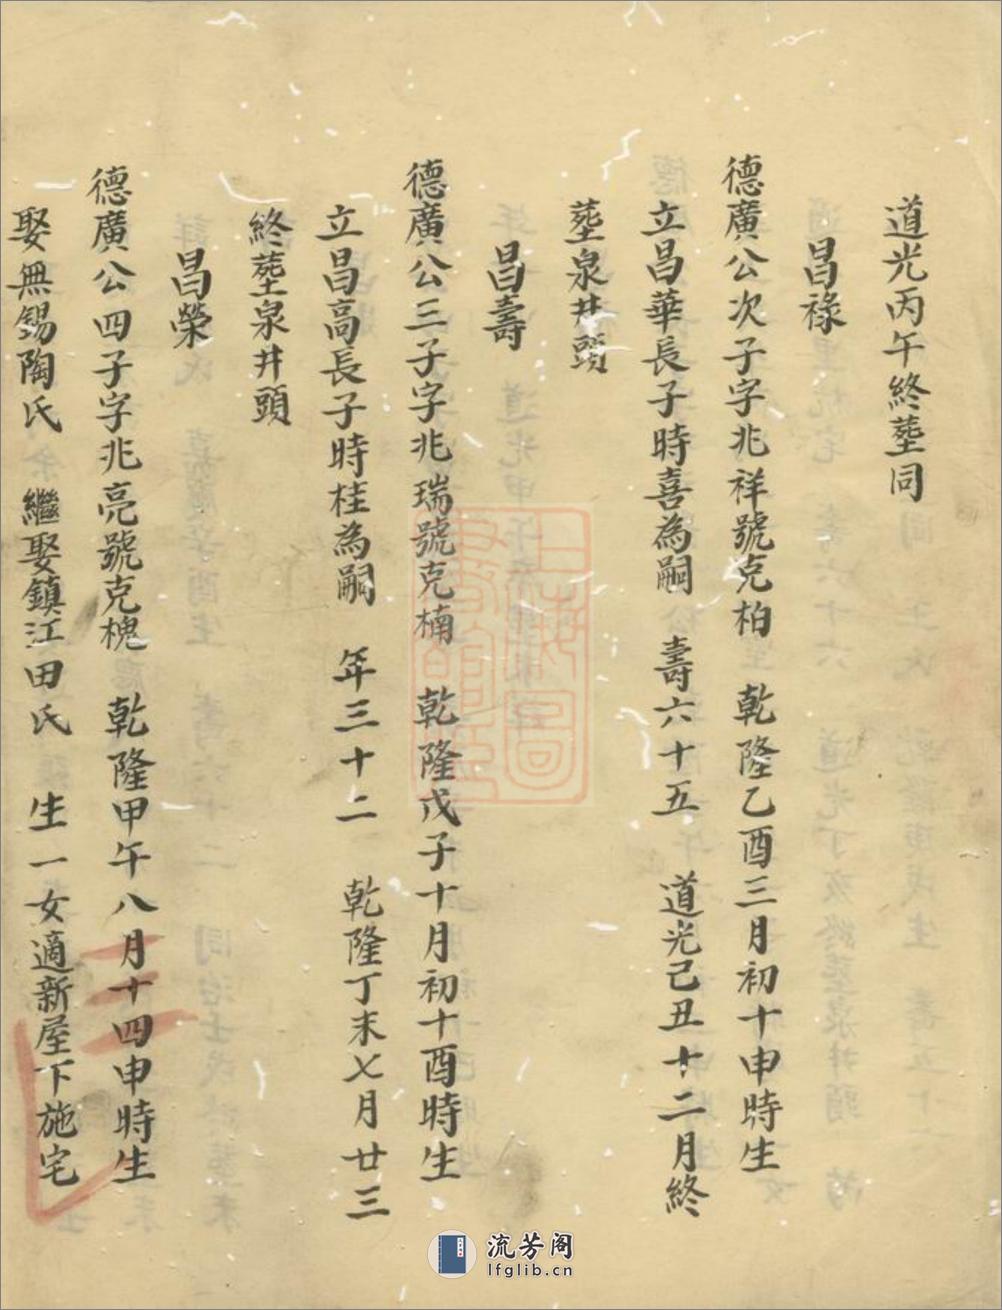 道光丙午終塟同
昌祿
德廣公次子字兆祥號克柏 乾隆乙酉三月初十申時生
立昌華長子時喜為嗣 壽六十五 道光己丑十二月終
塟泉井頭
昌壽
德廣公三子字兆瑞號克楠 乾隆戊子十月初十酉時生
立昌高長子時桂為嗣 年三十二 乾隆丁未七月廿三
終塟泉井頭
昌榮
德廣公四子字兆亮號克槐 乾隆甲午八月十四申時生
娶無錫陶氏 繼娶鎮江田氏 生一女適新屋下施宅
流芳阁
lfglib.cn